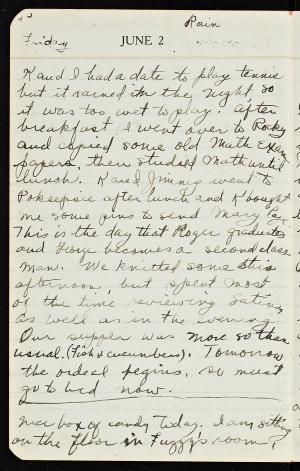 Rain
Friday JUNE 2
K and I had a date to play tennis
but it rained in the night so
it was too wet to play. After
breakfast I went over to Rocky
and copied some old Math Exam
papers, then studied Math until
lunch. K and Jimmy went to
Pokeepsie after lunch and K bought
me some pins to send Mary
This is the day that Roger graduates
and becomes a second class
man. We knitted some this
afternoon, but spent most
of the time reviewing Latin,
as well as in the evening
Our supper was more so than
usual. (Fish & cucumbers). Tomorrow
the ordeal begins, so must
go to bed now.
box of candy today. I am sitting
on the floor in Fuzzy's room.